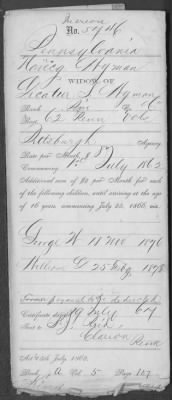 Increase
No. 5946
Pennsylvania
Nancy Wyman
WIDOW OF
Wyman
Rank Co.
Regt. 62 Penn Vols
Pittsburgh Agency
Rate per Month, $
Commencing July 1862
Additional sum of $2 per Month for each
of the following children, until arriving at the age
of 16 years commencing July 25, 1866, viz:
George W 18 1876
William G 25 Feby 1878
Former payment to be deducted
Certificate dated July 64
Sent to
Clarion
Penn
Act 14th July 1862.
Book A Vol. 5 Page 157